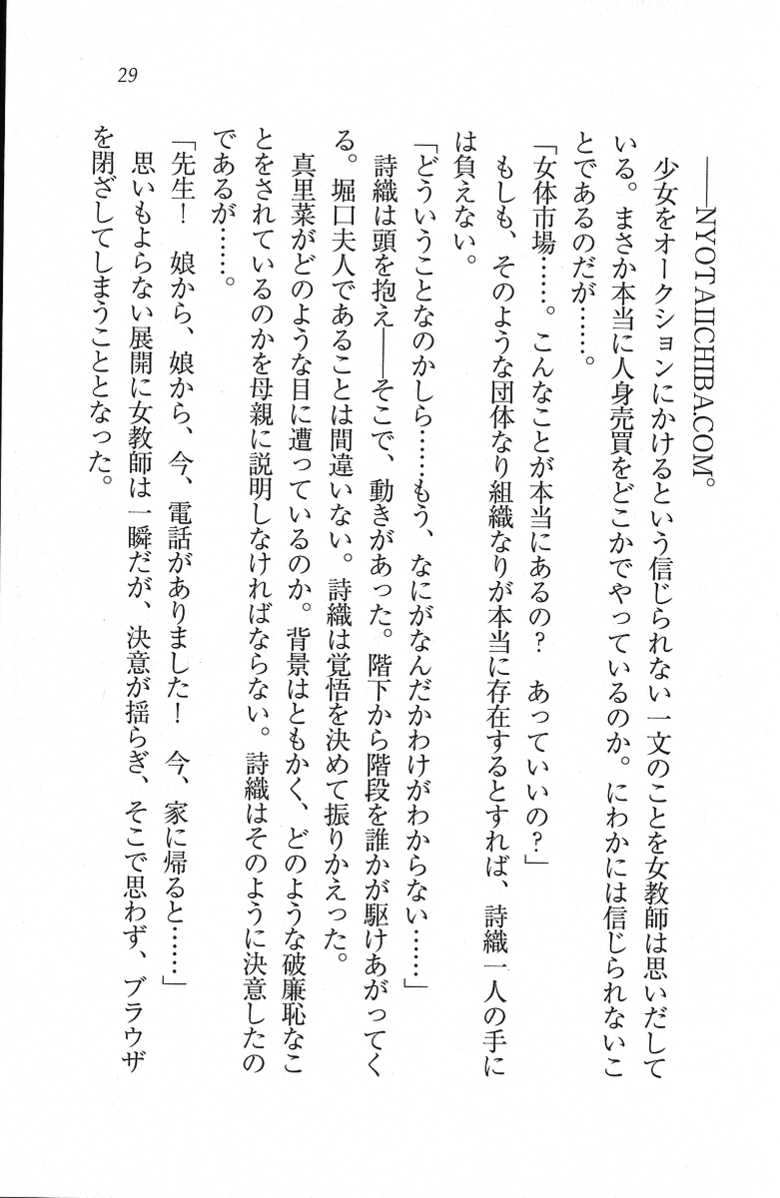 29
――NYOTAIICHIBA.COM。
少女をオークションにかけるという信じられない一文のことを女教師は思いだして
いる。まさか本当に人身売買をどこかでやっているのか。にわかには信じられないこ
とであるのだが……。
「女体市場……。こんなことが本当にあるの？　あっていいの？」
もしも、そのような団体なり組織なりが本当に存在するとすれば、詩織一人の手に
は負えない。
「どういうことなのかしら……もう、なにがなんだかわけがわからない……」
詩織は頭を抱え――そこで、動きがあった。階下から階段を誰かが駆けあがってく
る。堀口夫人であることは間違いない。詩織は覚悟を決めて振りかえった。
真里菜がどのような目に遭っているのか。背景はともかく、どのような破廉恥なこ
とをされているのかを母親に説明しなければならない。詩織はそのように決意したの
であるが……。
「先生！　娘から、娘から、今、電話がありました！　今、家に帰ると……」
思いもよらない展開に女教師は一瞬だが、決意が揺らぎ、そこで思わず、ブラウザ
を閉ざしてしまうこととなった。